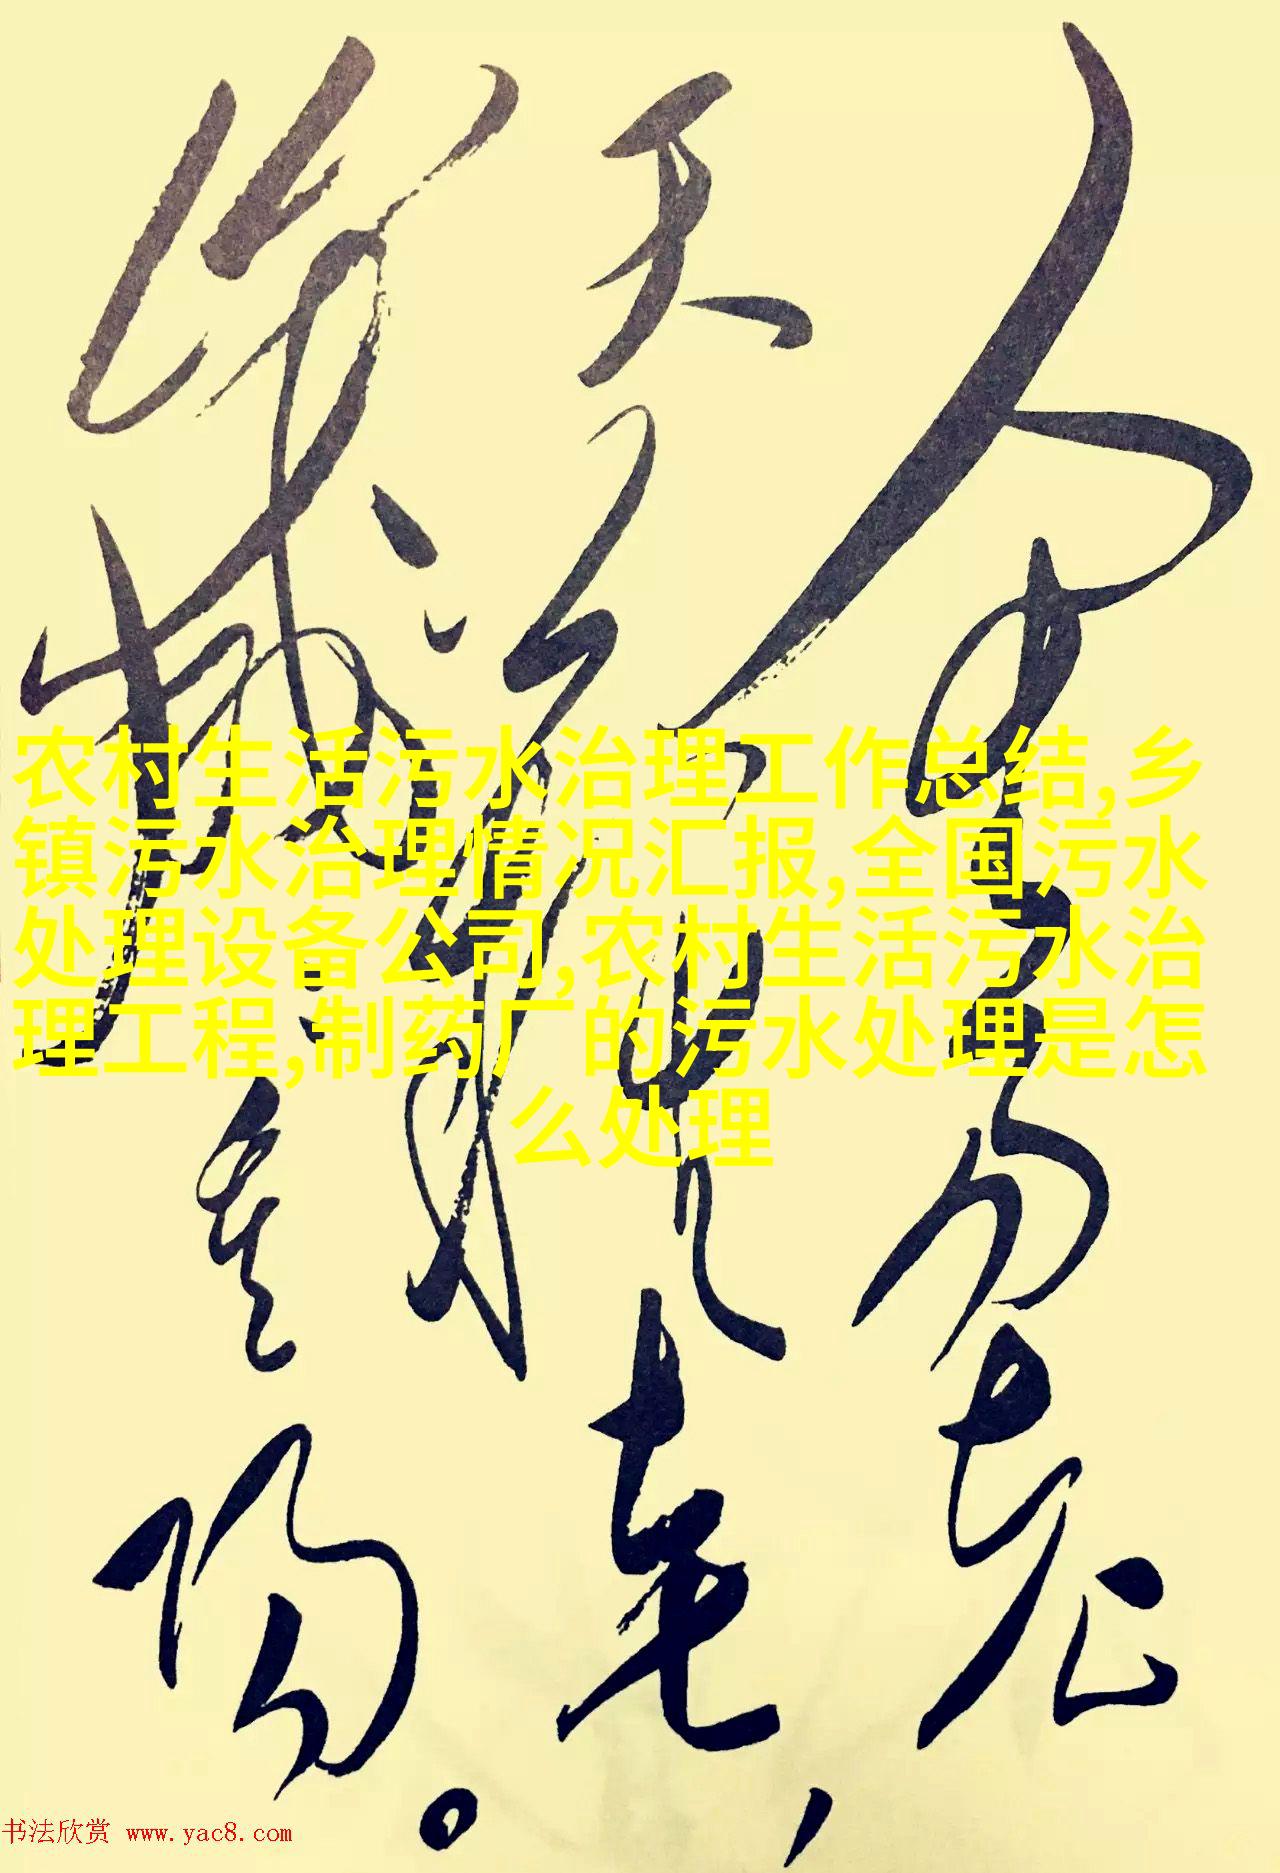 人生易老
天难老，
岁岁重阳。
农村生活污水治理工作总结,乡
镇污水治理情况汇报,全国污水
处理设备公司,农村生活污水治
理工程,制药厂的污水处理是怎
么处理
书法欣赏 www.yac8.com